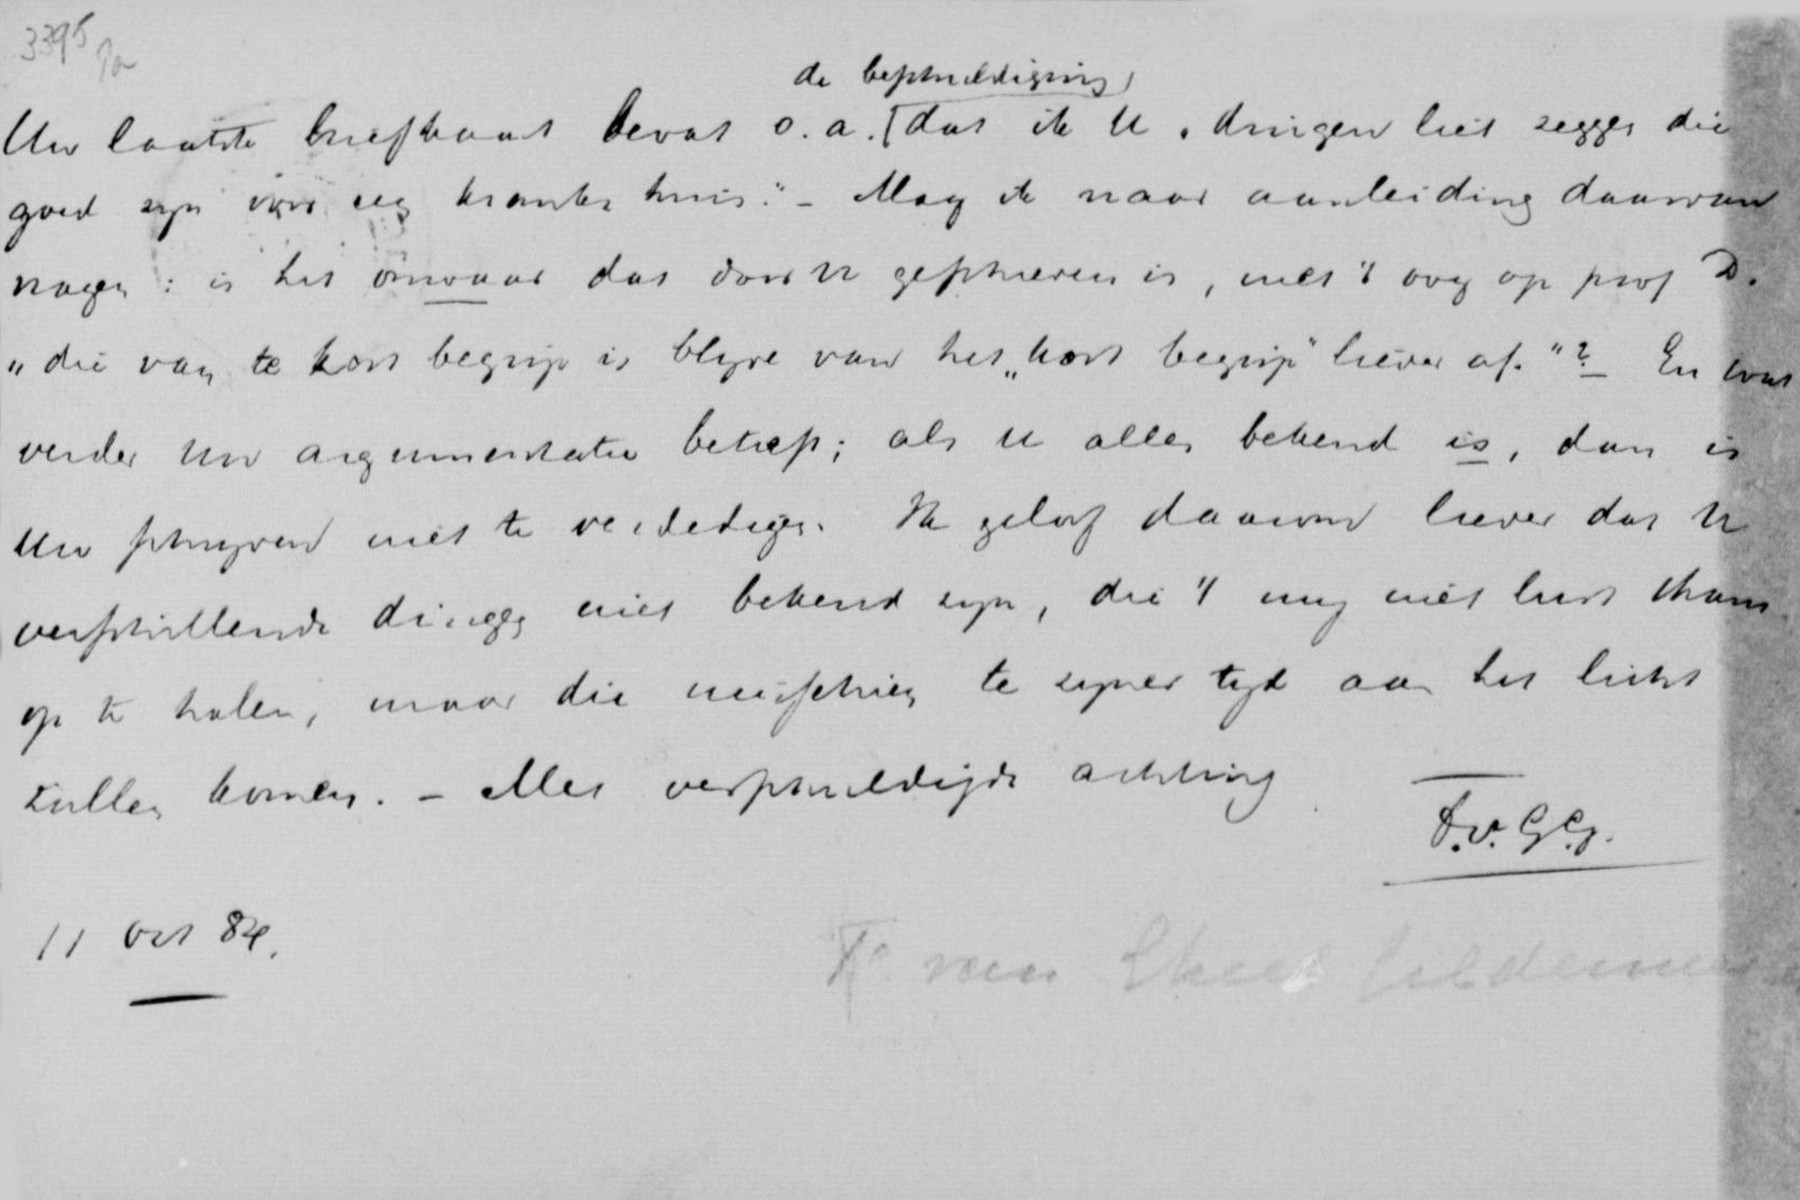 3395
de beschuldiging
Uw laatste briefkaart bevat o.a. [dat ik U „dingen liet zeggen die
goed zijn voor een krankz huis." - Mag ik naar aanleiding daarvan
vragen: is het onwaar dat door U geschreven is, met 't oog op prof D.
„die van te kort begrip is blijve van het „kort begrip" liever af."? En wat
verder uw argumentatie betreft; als U alles bekend is, dan is
Uw schrijven niet te verdedigen. Ik geloof daarom liever dat U
verschillende dingen niet bekend zijn, die 't mij niet lust thans
op te halen, maar die misschien te zijner tijd aan het licht
zullen komen. - Met verschuldigde achting
F.v.G.G.
11 Oct 84.
F. van Gheel Gildemeester